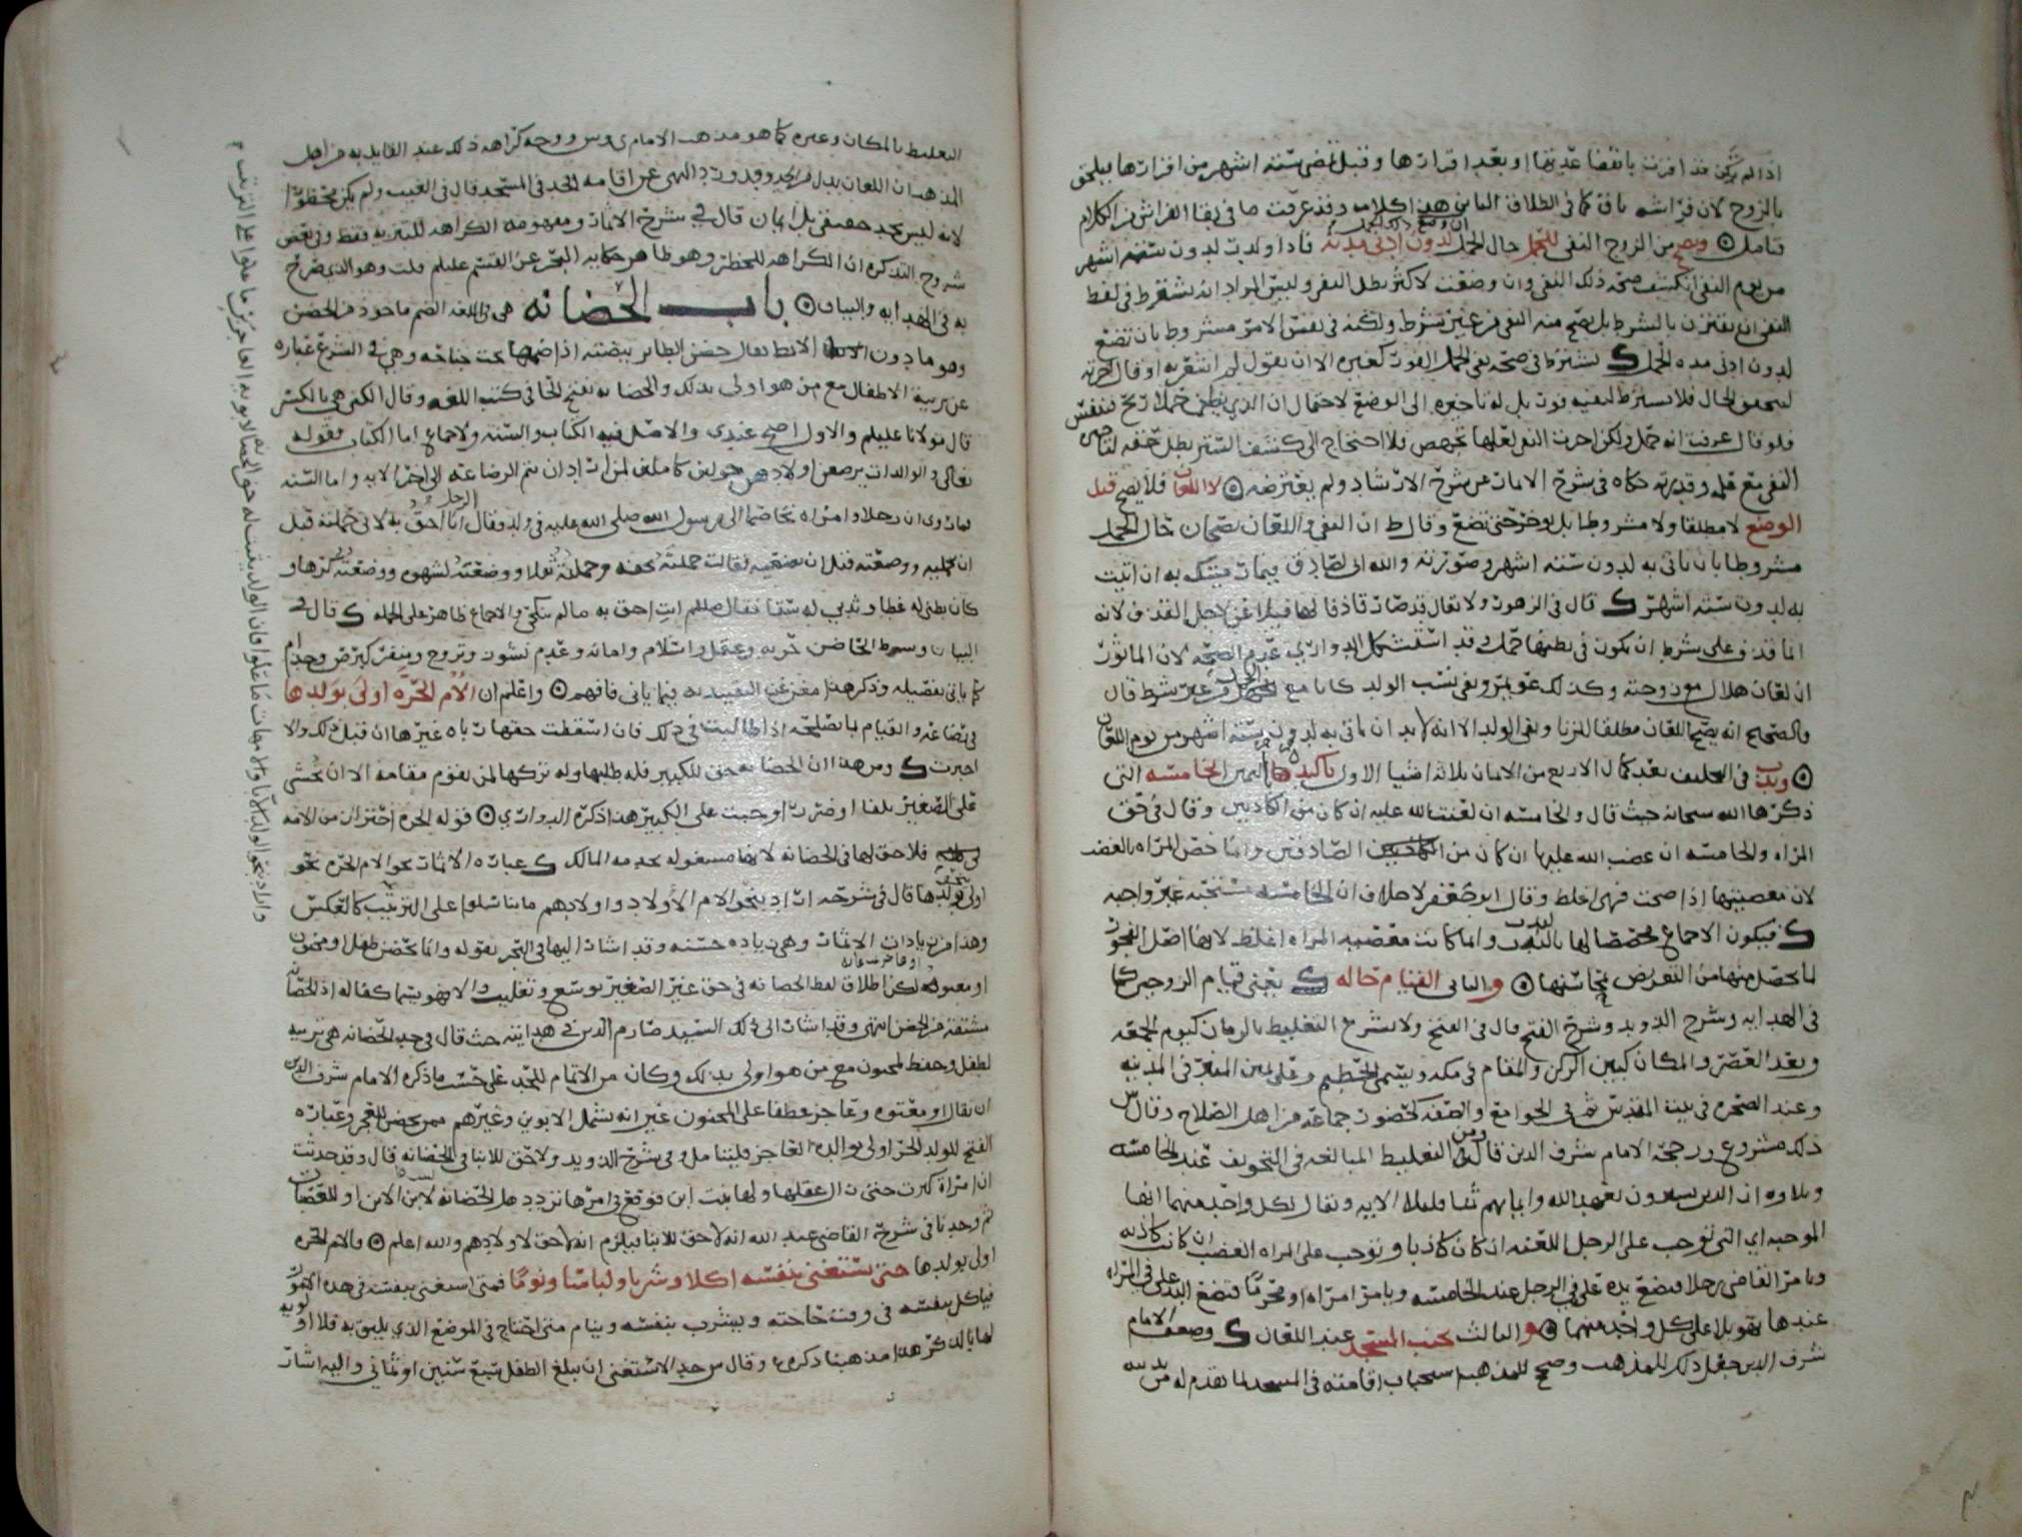 اذا لم تكن قد اقرت بانقضا عدتها او بعد اقرارها وقبل مضي ستة اشهر من اقرارها فيلحق
بالزوج لان فراشه باق كما في الطلاق البائن هذا كلامه وقد عرفت ما في بقا الفراش من الكلام
فتامل ويصح من الزوج النفي للحمل حال الحمل ان وضع لدون ادنى مدته فاذا ولدت لدون ستة اشهر
من يوم النفي انكشف صحة ذلك النفي وان وضعت لاكثر بطل النفي وليس المراد انه يشترط في لفظ
النفي ان يقترن بالشرط بل يصح منه النفي من غير شرط ولكنه في نفس الامر مشروط بان تضع
لدون ادنى مدة الحمل يشترط في صحة نفي الحمل الفور كغيره الا ان يقول لم اشعر به او قال اخرته
ليتحقق الحال فلا يشترط لنفيه فور بل له تاخيره الى الوضع لاحتمال ان الذي يظن حملا ريح فتنفس
فلو قال عرفت انه حمل ولكن اخرت النفي لعلها تجهض فلا احتاج الى كشف الستر بطل حقه لتاخير
النفي مع قدرته حكاه في شرح الاثمار عن شرح الارشاد ولم يعترضه لا اللعان فلا يصح قبل
الوضع لا مطلقا ولا مشروطا بل يوخر حتى تضع وقال ط ان النفي واللعان يصحان حال الحمل
مشروطا بان تاتي به لدون ستة اشهر وصورته والله اني لصادق فيما رميتك به ان اتيت
به لدون ستة اشهر قال في الزهور ولا يقال قد صار قاذفا لها فيلاعن لاجل القذف لانه
انما قذف على شرط ان يكون في بطنها حمل وقد استشكل الدواري عدم الصحة لان الماثور
ان لعان هلال مع زوجته وكذلك عويمر ونفي نسب الولد كانا مع الحمل من غير شرط قال
والصحيح انه يصح اللعان مطلقا للزنا ونفي الولد الا انه لا بد ان تاتي به لدون ستة اشهر من يوم اللعان
وندب في التحليف بعد كمال الاربع من الايمان ثلاثة اشيا الاول تاكيدها باليمين الخامسة التي
ذكرها الله سبحانه حيث قال والخامسة ان لعنت الله عليه ان كان من الكاذبين وقال في حق
المراه والخامسة ان غضب الله عليها ان كان من الصادقين وانما خص المراه بالغضب
لان معصيتها اذا صحت فهي اغلظ وقال ابو جعفر لا خلاف ان الخامسة مستحبة غير واجبه
فيكون الاجماع مخصصا لها بالندب وانما كانت معصية المراه اغلظ لانها اصل الفجور
لما يحصل منها من التعريض بمحاسنها والثاني القيام حاله يعني قيام الزوجين كما
في الهدايه وشرح الذويد وشرح الفتح قال في الفتح ولا يشرع التغليظ بالزمان كيوم الجمعه
وبعد العصر والمكان كبين الركن والمقام في مكه ويسمى الحطيم وعلى يمين المنبر في المدينه
وعند الصخره في بيت المقدس ثم في الجوامع والصفه كحضور جماعة من اهل الصلاح وقال ش
ذلك مشروع ورجحه الامام شرف الدين قال ومن التغليظ المبالغه في التخويف عند الخامسه
وتلاوة ان الذين يشترون بعهد الله وايمانهم ثمنا قليلا الاية ويقال لكل واحد منهما انها
الموجبه اي التي توجب على الرجل اللعنه ان كان كاذبا وتوجب على المراه الغضب ان كانت كاذبه
ويامر القاضي رجلا فيضع يده على في الرجل عند الخامسه ويامر امراه او محرما فتضع اليد على في المراه
عندها تهويلا على كل واحد منهما والثالث تجنب المسجد عند اللعان وضعف الامام
شرف الدين جعل ذلك للمذهب وصحح للمذهب استحباب اقامته في المسجد لما تقدم له من ندبيه
التغليظ بالمكان وغيره كما هو مذهب الامام ى وس ووجه كراهه ذلك عند القايل به من اهل
المذهب ان اللعان بدل من الحد وقد ورد النهي عن اقامه الحد في المسجد قال في الغيث ولم يكن محظورا
لانه ليس بحد حقيقي بل ايمان قال في شرح الاثمار ومفهومه الكراهه للتنزيه فقط وفي بعض
شروح التذكره ان الكراهه للحظر وهو ظاهر حكايه البحر عن القسم عليلم قلت وهو الذي صرح
به في الهدايه والبيان باب الحضانه هي في اللغه الضم ماخوذ من الحضن
وهو ما دون الابط يقال حضن الطائر بيضته اذا ضمها تحت جناحه وهي في الشرع عباره
عن تربية الاطفال مع من هو اولى بذلك والحضانه بفتح الحا في كتب اللغه وقال الكني هي بالكسر
قال مولانا عليلم والاول اصح عندي والاصل فيه الكتاب والسنه والاجماع اما الكتاب فقوله
تعالى والوالدات يرضعن اولادهن حولين كاملين لمن اراد ان يتم الرضاعه الى اخر الايه واما السنه
فماروى ان رجلا وامراه تخاصما الى رسول الله صلى الله عليه في ولد فقال الرجل انا احق به لاني حملته قبل
ان تحمليه ووضعته قبل ان تضعيه فقالت حملته خفه وحملته ثقلا ووضعته لشهوه ووضعته كرها و
كان بطني له غطا وثديي له سقا فقال صللم انت احق به ما لم تنكحي والاجماع ظاهر على الجمله قال في
البيان وشرط الحاضن حريه وعقل واسلام وامانه وعدم نشوز وتزوج ومنفر كبرص وجذام
كما ياتي تفصيله وذكر هذا مغن عن التقييد به فيما ياتي فافهم واعلم ان الام الحره اولى بولدها
في رضاعه والقيام بما يصلحه اذا طالبت في ذلك فان اسقطت حقها راه غيرها ان قبل ذلك والا
اجبرت ومن هذا ان الحضانه حق للكبير فله طلبها وله تركها لمن يقوم مقامه الا ان يخشى
على الصغير تلفا او ضررا وجبت على الكبير هذا ذكره الدواري قوله الحره احترازا من الامه
فلا حق لها في الحضانه لانها مشغوله بخدمه المالك عباره الاثمار نحو الام الحره نحو
اولى بولدها قال في شرحه اراد بنحو الام الاولاد واولادهم ما تناسلوا على الترتيب كالعكس
وهذا من زيادات الاثمار وهي زياده حسنه وقد اشار اليها في البحر بقوله وانما يحضن طفل او مجنون
او معتوه لكن اطلاق لفظ الحضانه في حق غير الصغير توسع وتغليب والا فهو يسما كفاله اذ الحضانه
مشتقه من الحضن انتهى وقد اشار الى ذلك السيد صارم الدين في هدايته حيث قال في حد الحضانه هي تربيه
لطفل وحفظ لمجنون مع من هو اولى بذلك وكان من الاتمام للحد على حسب ما ذكره الامام شرف الدين
ان يقال او معتوه وعاجز عطفا على المجنون غير انه يشمل الابوين وغيرهم ممن يحضن للعجز وعباره
الفتح للولد الحر اولى بوالده العاجز فليتامل وفي شرح الذويد ولا حق للابنا في الحضانه قال وقد حدثت
ان امراة كبرت حتى زال عقلها ولها بنت ابن فوقع في امرها تردد هل الحضانه لابن الابن او للعصبات
ثم وجدنا في شرح القاضي عبد الله انه لا حق للابنا فيلزم انه لا حق لاولادهم والله اعلم والام الحره
اولى بولدها حتى يستغني بنفسه اكلا وشربا ولباسا ونوما فمتى استغنى بنفسه في هذه الامور
فياكل بنفسه في وقت حاجته ويشرب بنفسه وينام متى احتاج في الموضع الذي يليق به فلا اولويه
لها بالذكر هذا مذهبنا ذكره ع وقال س حد الاستغنى ان يبلغ الطفل سبع سنين او ثماني واليه اشار